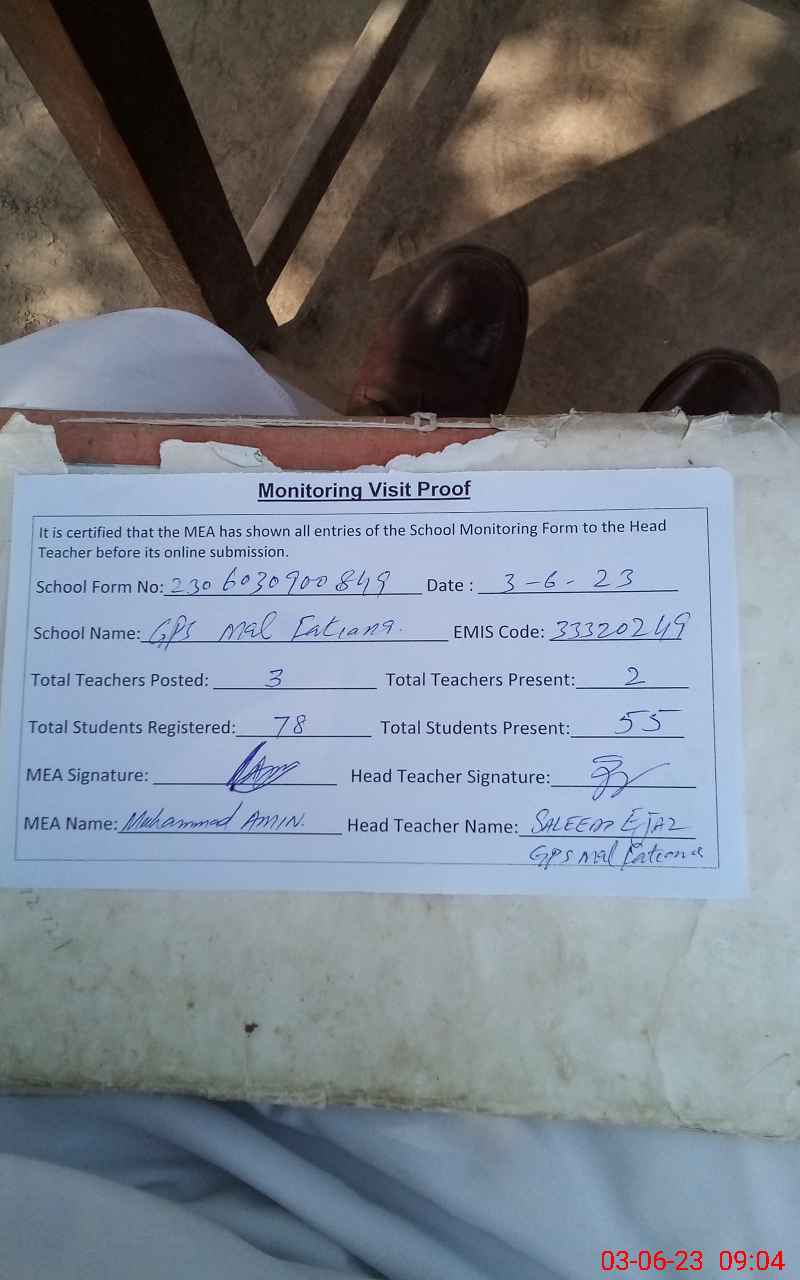 Monitoring Visit Proof
It is certified that the MEA has shown all entries of the School Monitoring Form to the Head
Teacher before its online submission.
School Form No: 2306030900849 Date : 3-6-23
School Name: GPS Mal Fatiana. EMIS Code: 33320249
Total Teachers Posted: 3 Total Teachers Present: 2
Total Students Registered: 78 Total Students Present: 55
MEA Signature: Head Teacher Signature:
MEA Name: Muhammad AMIN. Head Teacher Name: SALEEM EJAZ
GPS Mal Fatiana
03-06-23 09:04